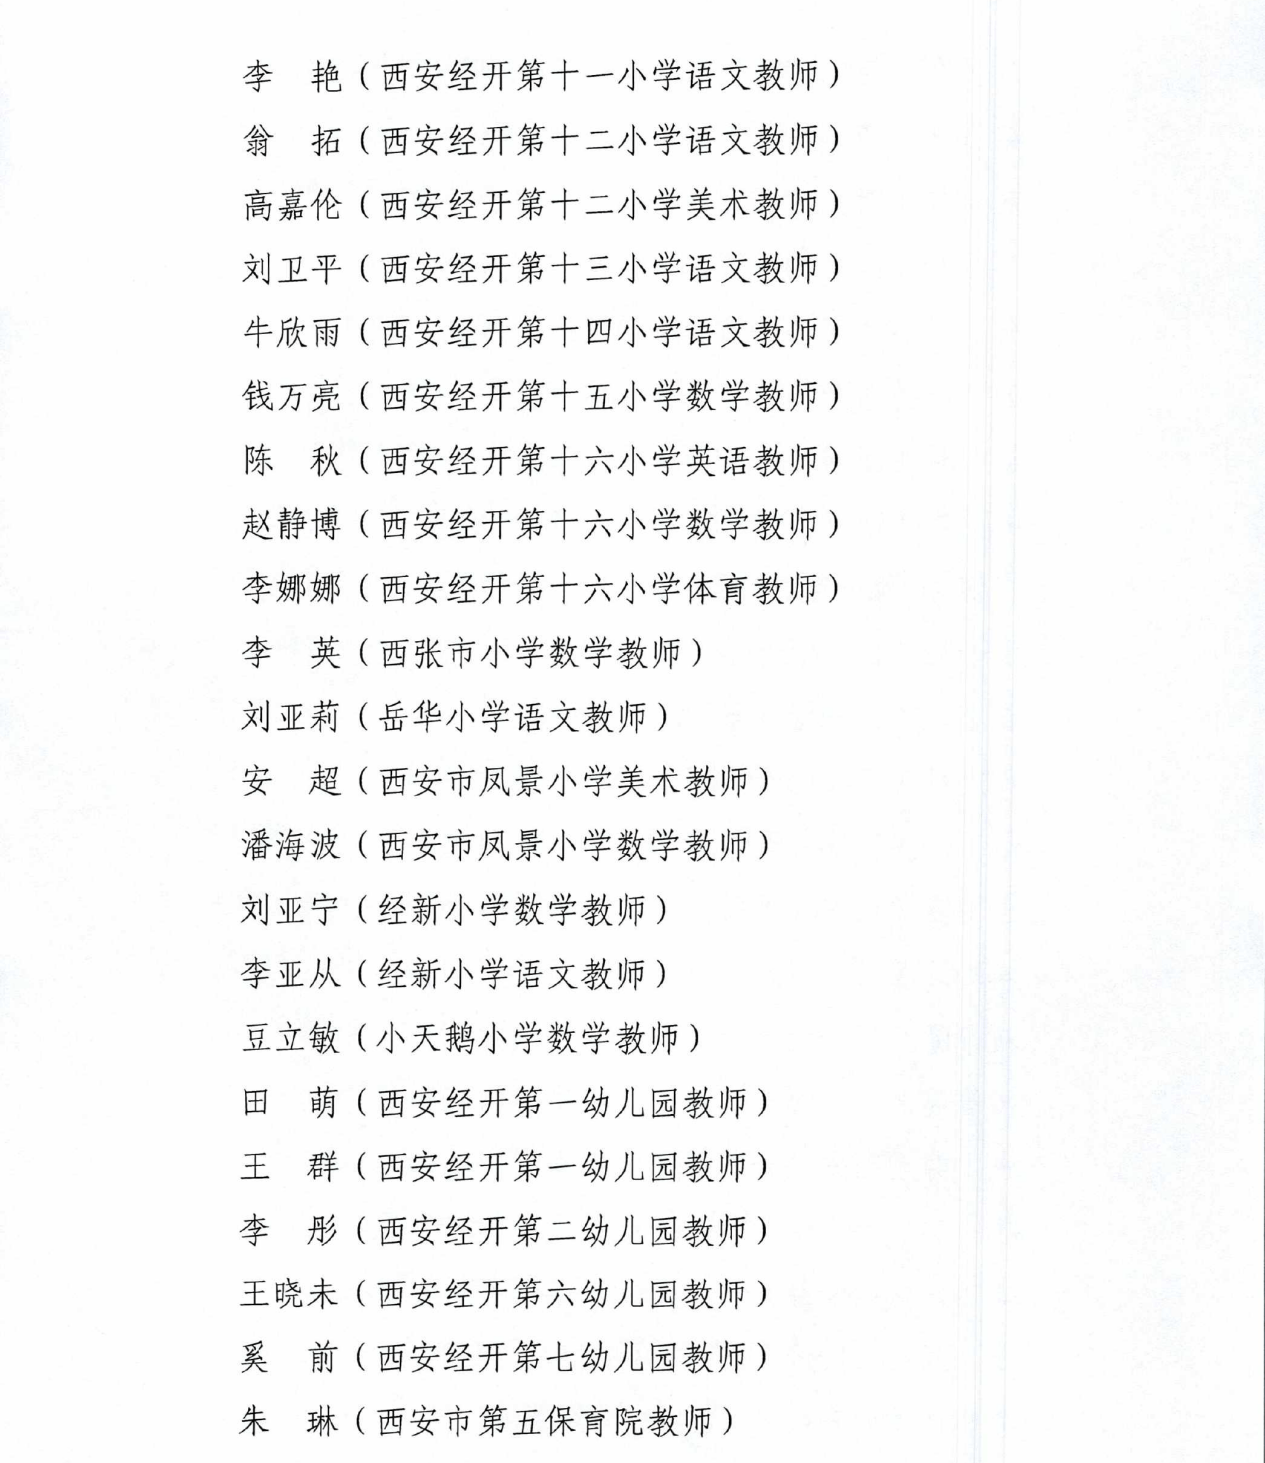 李　艳（西安经开第十一小学语文教师）
翁　拓（西安经开第十二小学语文教师）
高嘉伦（西安经开第十二小学美术教师）
刘卫平（西安经开第十三小学语文教师）
牛欣雨（西安经开第十四小学语文教师）
钱万亮（西安经开第十五小学数学教师）
陈　秋（西安经开第十六小学英语教师）
赵静博（西安经开第十六小学数学教师）
李娜娜（西安经开第十六小学体育教师）
李　英（西张市小学数学教师）
刘亚莉（岳华小学语文教师）
安　超（西安市凤景小学美术教师）
潘海波（西安市凤景小学数学教师）
刘亚宁（经新小学数学教师）
李亚从（经新小学语文教师）
豆立敏（小天鹅小学数学教师）
田　萌（西安经开第一幼儿园教师）
王　群（西安经开第一幼儿园教师）
李　彤（西安经开第二幼儿园教师）
王晓未（西安经开第六幼儿园教师）
奚　前（西安经开第七幼儿园教师）
朱　琳（西安市第五保育院教师）